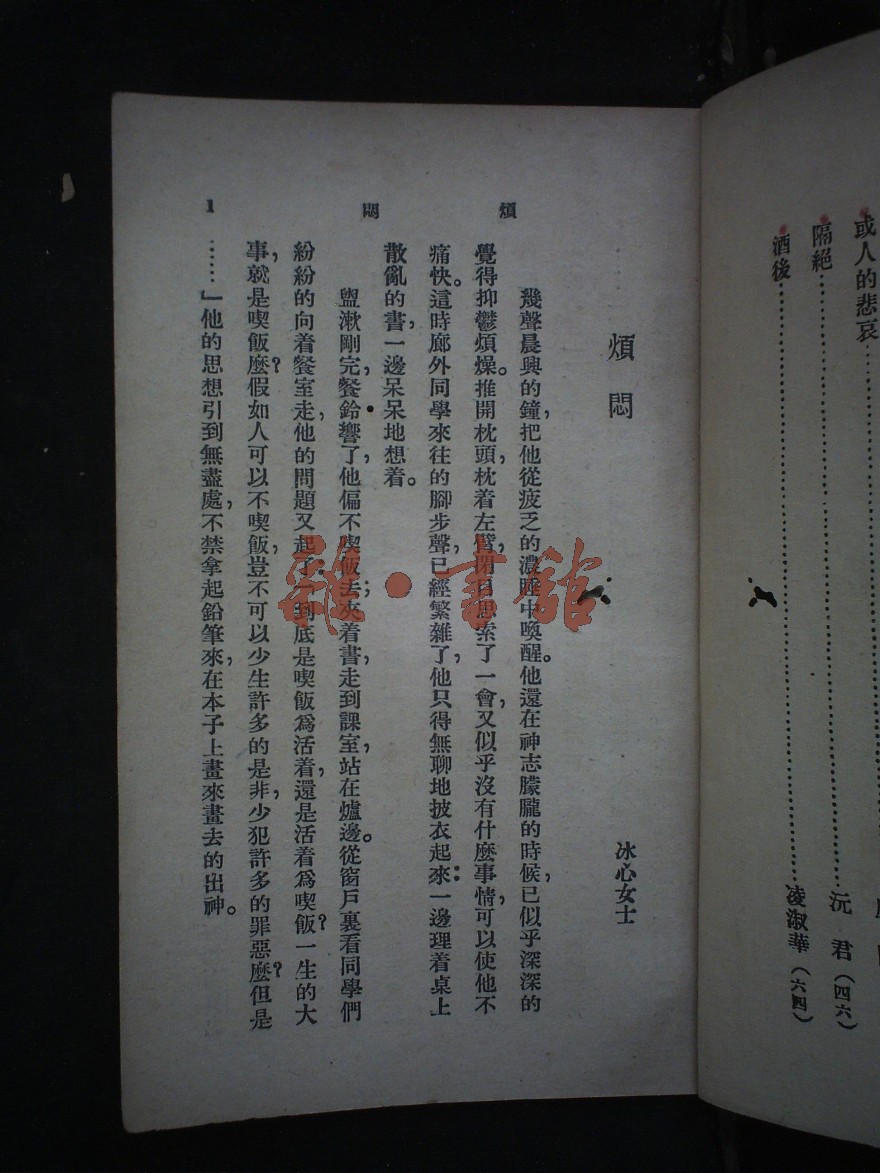 或人的悲哀……
隔絕……沅君（四六）
酒後……凌淑華（六四）
煩悶
冰心女士
幾聲晨興的鐘，把他從疲乏的濃睡中喚醒。他還在神志朦朧的時候，已似乎深深的
覺得抑鬱煩燥。推開枕頭，枕着左臂，閉目思索了一會，又似乎沒有什麽事情，可以使他不
痛快。這時廊外同學來往的腳步聲，已經繁雜了，他只得無聊地披衣起來：一邊理着桌上
散亂的書，一邊呆呆地想着。
盥漱剛完，餐鈴響了，他偏不喫飯去；夾着書，走到課室，站在爐邊。從窗戶裏看同學們
紛紛的向着餐室走，他的問題又起了：「到底是喫飯爲活着，還是活着爲喫飯？一生的大
事，就是喫飯麽？假如人可以不喫飯，豈不可以少生許多的是非，少犯許多的罪惡麽？但是
……」他的思想引到無盡處，不禁拿起鉛筆來，在本子上畫來畫去的出神。
煩悶
1
雜·書館